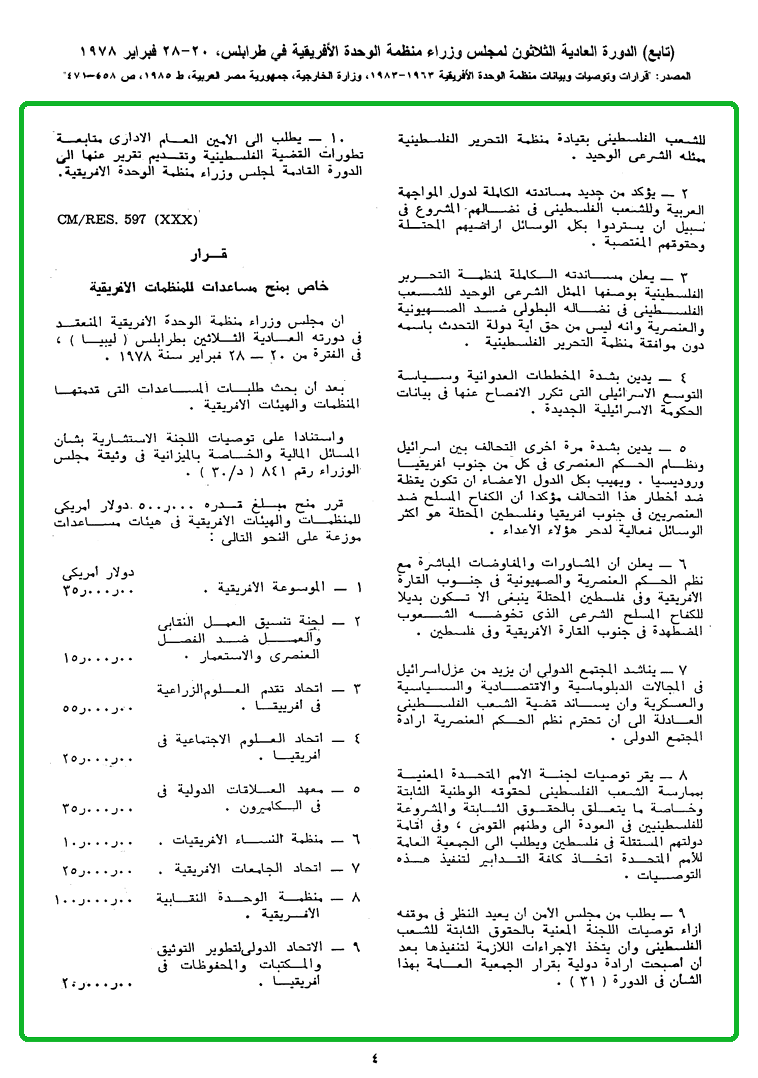 (تابع) الدورة العادية الثلاثون لمجلس وزراء منظمة الوحدة الأفريقية في طرابلس، ٢٠-٢٨ فبراير ١٩٧٨
المصدر: "قرارات وتوصيات وبيانات منظمة الوحدة الأفريقية ١٩٦٣-١٩٨٣، وزارة الخارجية، جمهورية مصر العربية، ط ١٩٨٥، ص ٤٥٨-٤٧١"
للشعب الفلسطينى بقيادة منظمة التحرير الفلسطينية
ممثله الشرعى الوحيد .
٢ — يؤكد من جديد مساندته الكاملة لدول المواجهة
العربية وللشعب الفلسطينى فى نضالهم المشروع فى
سبيل ان يستردوا بكل الوسائل اراضيهم المحتلة
وحقوقهم المغتصبة .
٣ — يعلن مساندته الكاملة لمنظمة التحرير
الفلسطينية بوصفها الممثل الشرعى الوحيد للشعب
الفلسطينى فى نضاله البطولى ضد الصهيونية
والعنصرية وانه ليس من حق اية دولة التحدث باسمه
دون موافقة منظمة التحرير الفلسطينية .
٤ — يدين بشدة المخططات العدوانية وسياسة
التوسع الاسرائيلى التى تكرر الافصاح عنها فى بيانات
الحكومة الاسرائيلية الجديدة .
٥ — يدين بشدة مرة أخرى التحالف بين اسرائيل
ونظام الحكم العنصرى فى كل من جنوب أفريقيا
وروديسيا . ويهيب بكل الدول الاعضاء ان تكون يقظة
ضد أخطار هذا التحالف مؤكدا ان الكفاح المسلح ضد
العنصريين فى جنوب افريقيا وفلسطين المحتلة هو أكثر
الوسائل فعالية لدحر هؤلاء الاعداء .
٦ — يعلن ان المشاورات والمفاوضات المباشرة مع
نظم الحكم العنصرية والصهيونية فى جنوب القارة
الافريقية وفى فلسطين المحتلة ينبغى الا تكون بديلا
للكفاح المسلح الشرعى الذى تخوضه الشعوب
المضطهدة فى جنوب القارة الافريقية وفى فلسطين .
٧ — يناشد المجتمع الدولى ان يزيد من عزل اسرائيل
فى المجالات الدبلوماسية والاقتصادية والسياسية
والعسكرية وان يساند قضية الشعب الفلسطينى
العادلة الى ان تحترم نظم الحكم العنصرية ارادة
المجتمع الدولى .
٨ — يقر توصيات لجنة الأمم المتحدة المعنية
بممارسة الشعب الفلسطينى لحقوقه الوطنية الثابتة
وخاصة ما يتعلق بالحقوق الثابتة والمشروعة
للفلسطينيين فى العودة الى وطنهم القومى ، وفى أقامة
دولتهم المستقلة فى فلسطين ويطلب الى الجمعية العامة
للأمم المتحدة اتخاذ كافة التدابير لتنفيذ هذه
التوصيات .
٩ — يطلب من مجلس الأمن ان يعيد النظر فى موقفه
ازاء توصيات اللجنة المعنية بالحقوق الثابتة للشعب
الفلسطينى وان يتخذ الاجراءات اللازمة لتنفيذها بعد
أن أصبحت ارادة دولية بقرار الجمعية العامة بهذا
الشأن فى الدورة ( ٣١ ) .
١٠ — يطلب الى الامين العام الادارى متابعة
تطورات القضية الفلسطينية وتقديم تقرير عنها الى
الدورة القادمة لمجلس وزراء منظمة الوحدة الافريقية.
CM/RES. 597 (XXX)
قرار
خاص بمنح مساعدات للمنظمات الافريقية
ان مجلس وزراء منظمة الوحدة الافريقية المنعقد
فى دورته العادية الثلاثين بطرابلس ( ليبيا ) ،
فى الفترة من ٢٠ — ٢٨ فبراير سنة ١٩٧٨ .
بعد ان بحث طلبات المساعدات التى قدمتها
المنظمات والهيئات الافريقية .
واستنادا على توصيات اللجنة الاستشارية بشأن
المسائل المالية والخاصة بالميزانية فى وثيقة مجلس
الوزراء رقم ٨٤١ ( د/٣٠ ) .
قرر منح مبلغ قدره ٥٠٠ر٠٠٠ دولار أمريكى
للمنظمات والهيئات الافريقية فى هيئات مساعدات
موزعة على النحو التالى :
دولار أمريكى
١ — الموسوعة الافريقية . ٣٥ر٠٠٠ر٠٠
٢ — لجنة تنسيق العمل النقابى
والعمل ضد الفصل
العنصرى والاستعمار . ١٥ر٠٠٠ر٠٠
٣ — اتحاد تقدم العلوم الزراعية
فى أفريقيا . ٥٥ر٠٠٠ر٠٠
٤ — اتحاد العلوم الاجتماعية فى
أفريقيا . ٢٥ر٠٠٠ر٠٠
٥ — معهد العلاقات الدولية فى
فى الكاميرون . ٣٥ر٠٠٠ر٠٠
٦ — منظمة النساء الأفريقيات . ١٠ر٠٠٠ر٠٠
٧ — اتحاد الجامعات الأفريقية . ٢٥ر٠٠٠ر٠٠
٨ — منظمة الوحدة النقابية ١٠٠ر٠٠٠ر٠٠
الافريقية .
٩ — الاتحاد الدولى لتطوير التوثيق
والمكتبات والمحفوظات فى
أفريقيا . ٢٠ر٠٠٠ر٠٠
٤